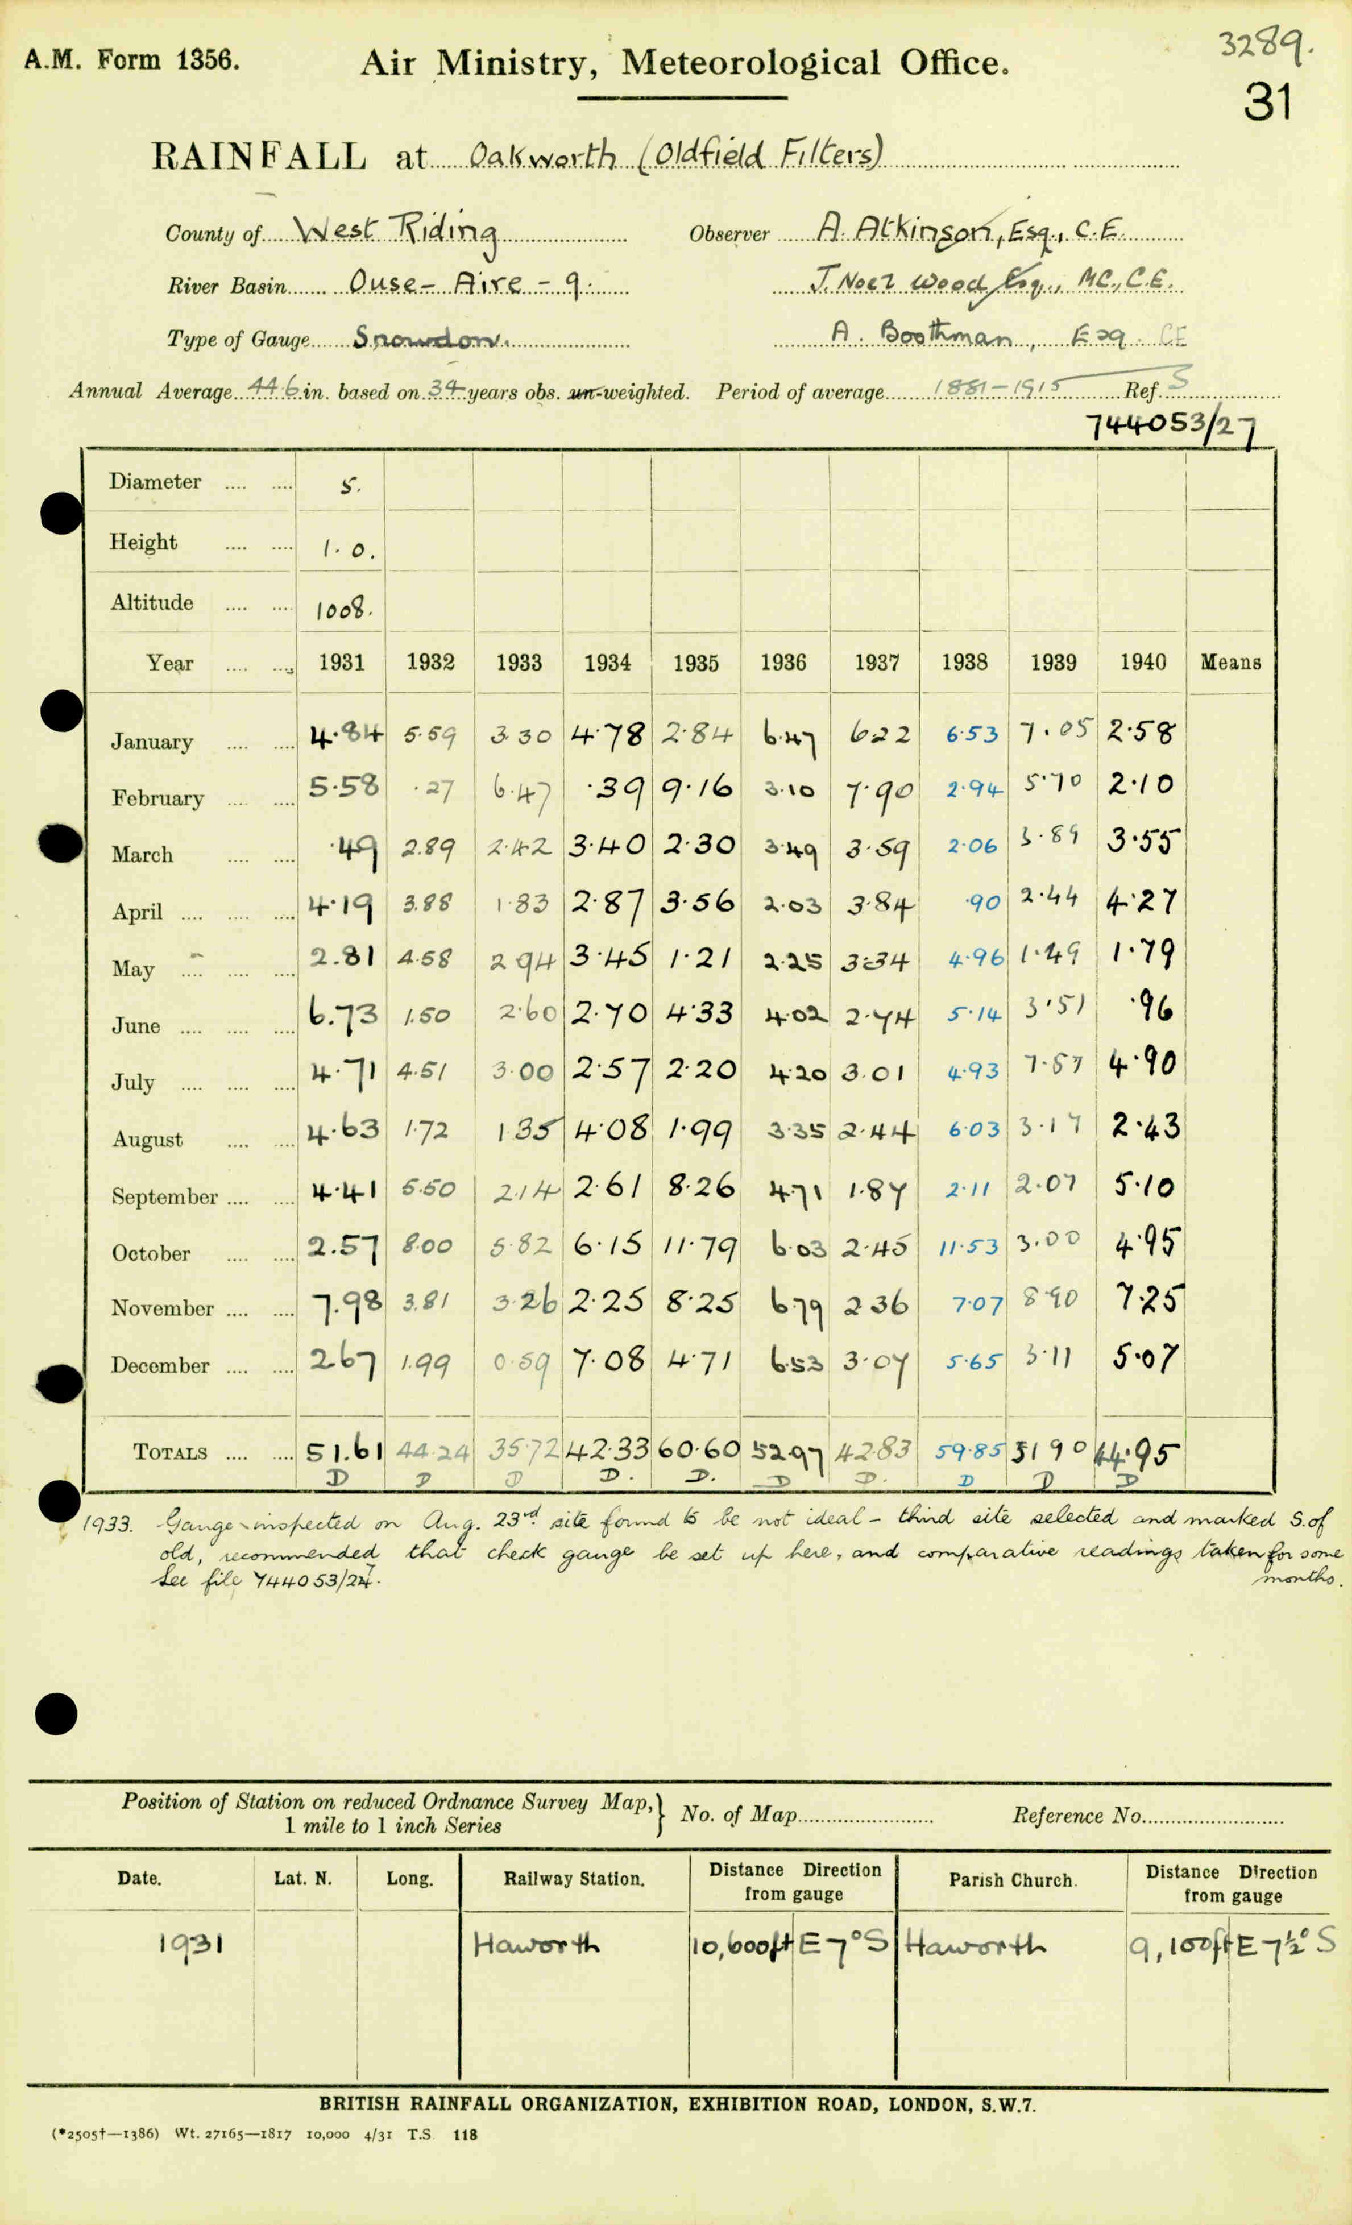 3289.
A.M. Form 1356.
Air Ministry, Meteorological Office.
31
RAINFALL at Oakworth (Oldfield Filters)
County of West Riding Observer A. Atkinson, Esq., C.E.
River Basin Ouse - Aire - 9. J. Noel Wood Esq., MC., C.E.
Type of Gauge Snowdon. A. Boothman, Esq. CE
Annual Average 44.6 in. based on 34 years obs. un-weighted. Period of average 1881-1915 Ref. S
744053/27
Diameter .... .... 5.
Height .... .... 1. 0.
Altitude .... .... 1008.
Year .... .... 1931 1932 1933 1934 1935 1936 1937 1938 1939 1940 Means
January .... .... 4.84 5.59 3.30 4.78 2.84 6.47 6.22 6.53 7.05 2.58
February .... .... 5.58 .27 6.47 .39 9.16 3.10 7.90 2.94 5.70 2.10
March .... .... .49 2.89 2.42 3.40 2.30 3.49 3.59 2.06 3.89 3.55
April .... .... .... 4.19 3.88 1.83 2.87 3.56 2.03 3.84 .90 2.44 4.27
May .... .... .... 2.81 4.58 2.94 3.45 1.21 2.25 3.34 4.96 1.49 1.79
June .... .... .... 6.73 1.50 2.60 2.70 4.33 4.02 2.74 5.14 3.51 .96
July .... .... .... 4.71 4.51 3.00 2.57 2.20 4.20 3.01 4.93 7.57 4.90
August .... .... 4.63 1.72 1.35 4.08 1.99 3.35 2.44 6.03 3.17 2.43
September .... .... 4.41 5.50 2.14 2.61 8.26 4.71 1.87 2.11 2.07 5.10
October .... .... 2.57 8.00 5.82 6.15 11.79 6.03 2.45 11.53 3.00 4.95
November .... .... 7.98 3.81 3.26 2.25 8.25 6.79 2.36 7.07 8.90 7.25
December .... .... 2.67 1.99 0.59 7.08 4.71 6.53 3.07 5.65 3.11 5.07
TOTALS .... .... 51.61 44.24 35.72 42.33 60.60 52.97 42.83 59.85 51.90 44.95
D D D D. D. D D. D D D
1933. Gauge inspected on Aug. 23rd. site found to be not ideal - third site selected and marked S. of
old, recommended that check gauge be set up here, and comparative readings taken for some
See file 744053/27. months.
Position of Station on reduced Ordnance Survey Map,} No. of Map Reference No.
1 mile to 1 inch Series
Date. Lat. N. Long. Railway Station. Distance Direction from gauge Parish Church. Distance Direction from gauge
1931 Haworth 10,600ft E 7° S Haworth 9,100ft E 7½° S
BRITISH RAINFALL ORGANIZATION, EXHIBITION ROAD, LONDON, S.W.7.
(*2505†—1386) Wt. 27165—1817 10,000 4/31 T.S. 118